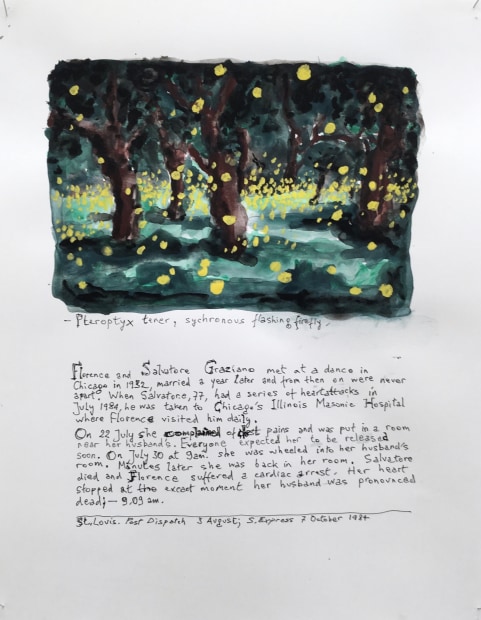 - Pteroptyx tener, sychronous flashing firefly.
Florence and Salvatore Graziano met at a dance in
Chicago in 1932, married a year later and from then on were never
apart. When Salvatore, 77, had a series of heartattacks in
July 1984, he was taken to Chicago's Illinois Masonic Hospital
where Florence visited him daily.
On 22 July she complained of chest pains and was put in a room
near her husbands. Everyone expected her to be released
soon. On July 30 at 9am. she was wheeled into her husband's
room. Minutes later she was back in her room. Salvatore
died and Florence suffered a cardiac arrest. Her heart
stopped at the excart moment her husband was pronounced
dead; — 9.09 am.
St. Louis. Post Dispatch 3 August; S. Express 7 October 1984